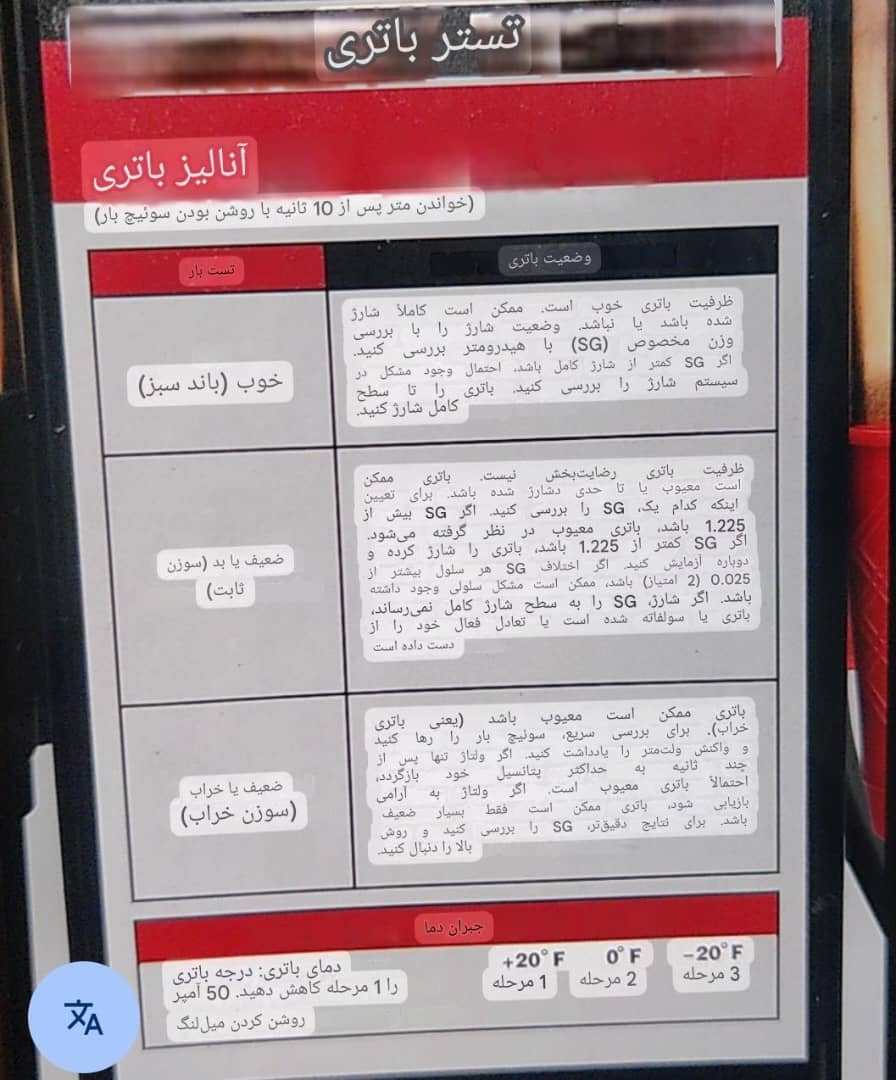 تستر باتری
آنالیز باتری
(خواندن متر پس از 10 ثانیه با روشن بودن سوئیچ بار)
تست بار
وضعیت باتری
خوب (باند سبز)
ظرفیت باتری خوب است. ممکن است کاملاً شارژ
شده باشد یا نباشد. وضعیت شارژ را با بررسی
وزن مخصوص (SG) با هیدرومتر بررسی کنید.
اگر SG کمتر از شارژ کامل باشد، احتمال وجود مشکل در
سیستم شارژ را بررسی کنید. باتری را تا سطح
کامل شارژ کنید.
ضعیف یا بد (سوزن
ثابت)
ظرفیت باتری رضایت‌بخش نیست. باتری ممکن
است معیوب یا تا حدی دشارژ شده باشد. برای تعیین
اینکه کدام یک، SG را بررسی کنید. اگر SG بیش از
1.225 باشد، باتری معیوب در نظر گرفته می‌شود.
اگر SG کمتر از 1.225 باشد، باتری را شارژ کرده و
دوباره آزمایش کنید. اگر اختلاف SG هر سلول بیشتر از
0.025 (2 امتیاز) باشد، ممکن است مشکل سلولی وجود داشته
باشد. اگر شارژ، SG را به سطح شارژ کامل نمی‌رساند،
باتری یا سولفاته شده است یا تعادل فعال خود را از
دست داده است
ضعیف یا خراب
(سوزن خراب)
باتری ممکن است معیوب باشد (یعنی باتری
خراب). برای بررسی سریع، سوئیچ بار را رها کنید
و واکنش ولت‌متر را یادداشت کنید. اگر ولتاژ تنها پس از
چند ثانیه به حداکثر پتانسیل خود بازگردد،
احتمالاً باتری معیوب است. اگر ولتاژ به آرامی
بازیابی شود، باتری ممکن است فقط بسیار ضعیف
باشد. برای نتایج دقیق‌تر، SG را بررسی کنید و روش
بالا را دنبال کنید.
جبران دما
دمای باتری: درجه باتری
را 1 مرحله کاهش دهید. 50 آمپر
روشن کردن میل‌لنگ
+20°F 0°F −20°F
1 مرحله 2 مرحله 3 مرحله